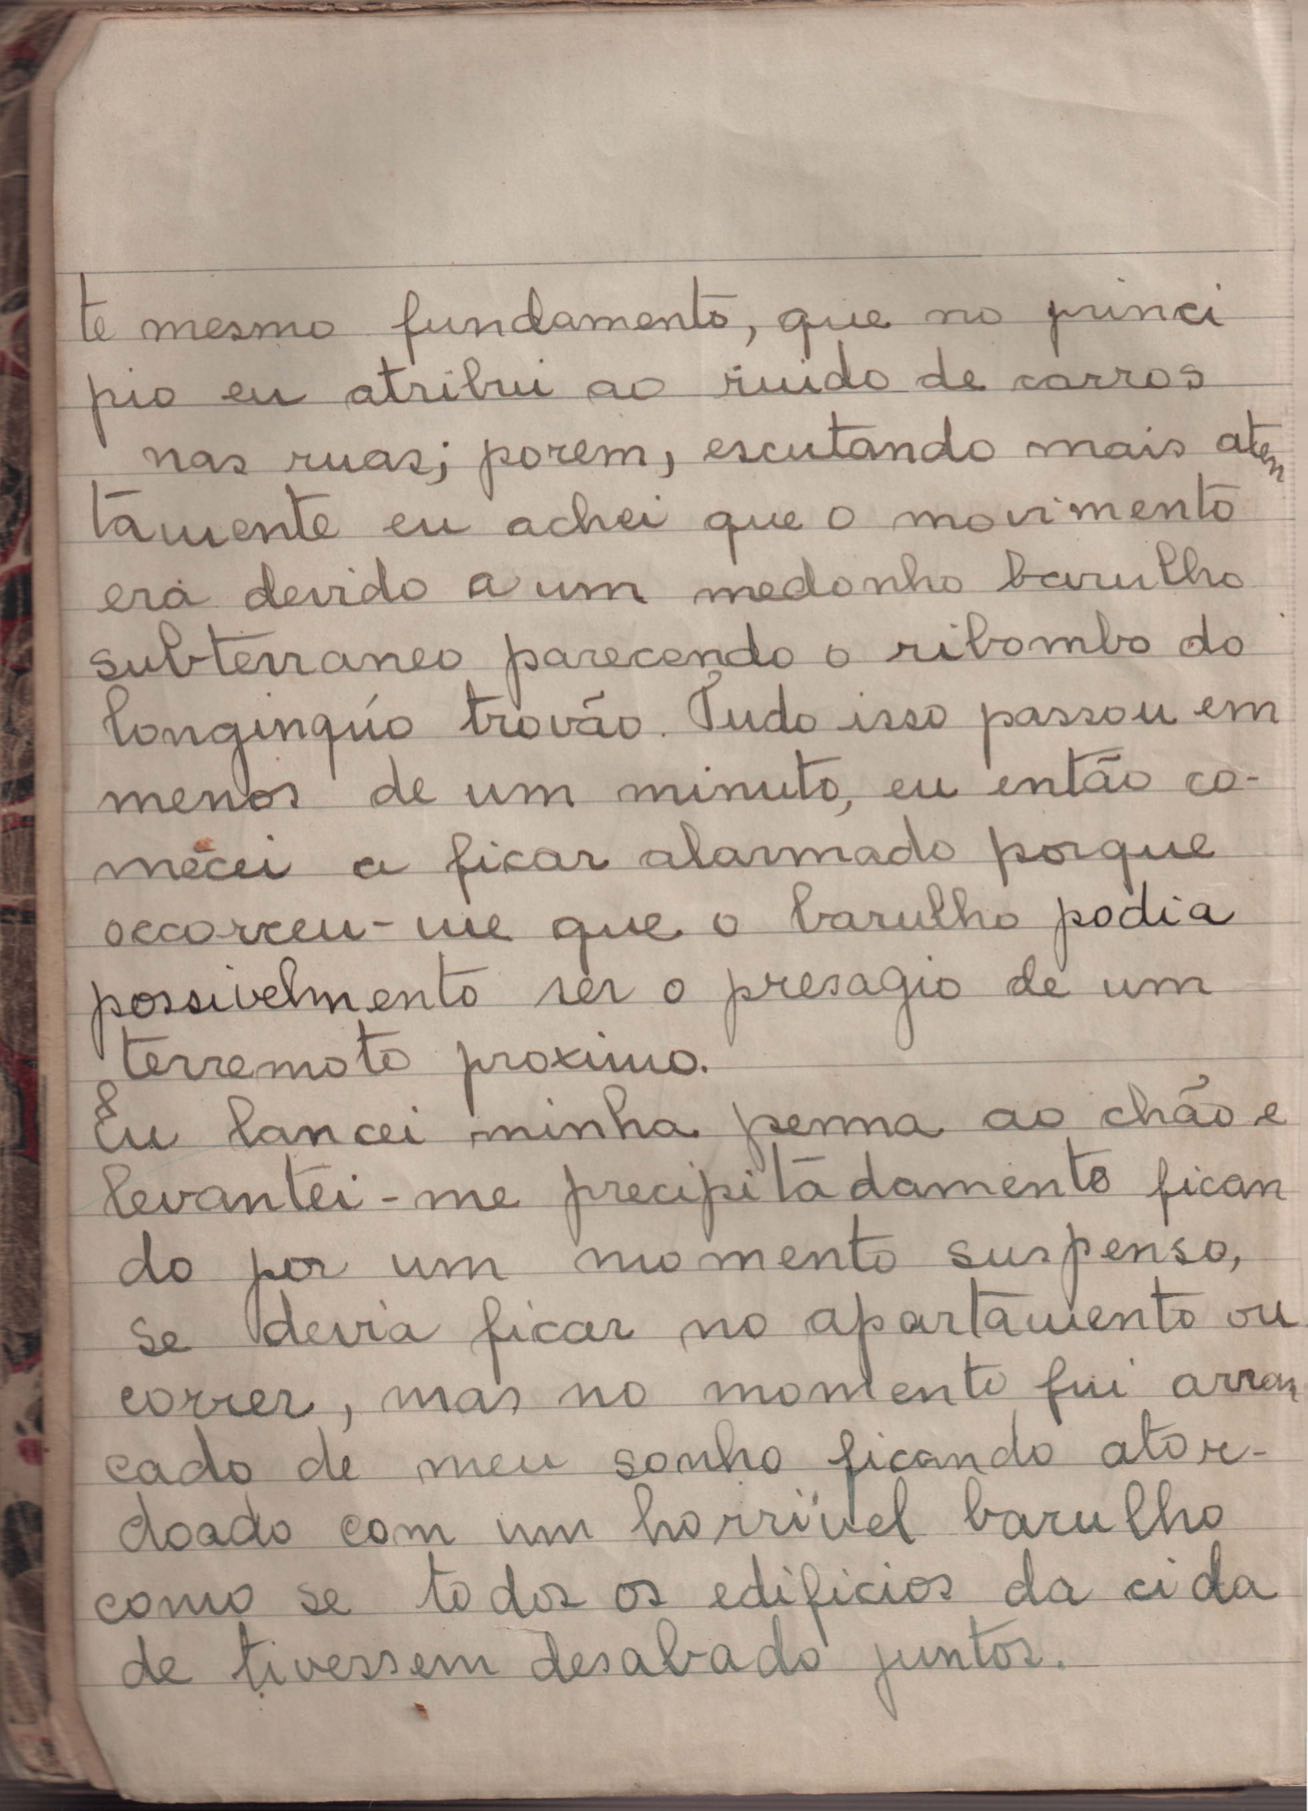 te mesmo fundamento, que no princi
pio eu atribui ao ruido de carros
nas ruas; porem, escutando mais aten
tamente eu achei que o movimento
era devido a um medonho barulho
subterraneo parecendo o ribombo do
longinqúo trovão. Tudo isso passou em
menos de um minuto, eu então co-
mecei a ficar alarmado porque
occorreu-me que o barulho podia
possivelmento ser o presagio de um
terremoto proximo.
Eu lancei minha penna ao chão e
levantei-me precipitadamento fican
do por um momento suspenso,
se devia ficar no apartamento ou
correr, mas no momento fui arran
cado de meu sonho ficando ator-
doado com um horrivel barulho
como se todos os edificios da cida
de tivessem desabado juntos.